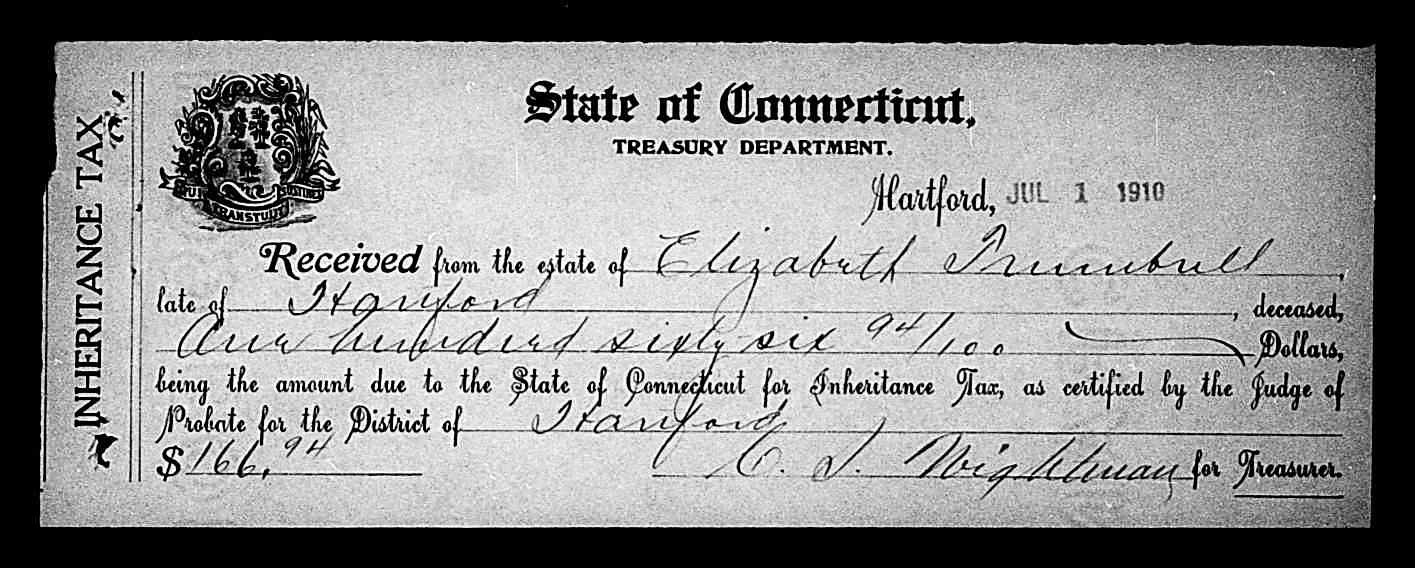 INHERITANCE TAX
State of Connecticut,
TREASURY DEPARTMENT.
Hartford, JUL 1 1910
QUI TRANSTULIT SUSTINET
Received from the estate of Elizabeth Trumbull,
late of Hartford, deceased,
One hundred sixty six 94/100 Dollars,
being the amount due to the State of Connecticut for Inheritance Tax, as certified by the Judge of
Probate for the District of Hartford
$166.94 C. S. Wightman for Treasurer.